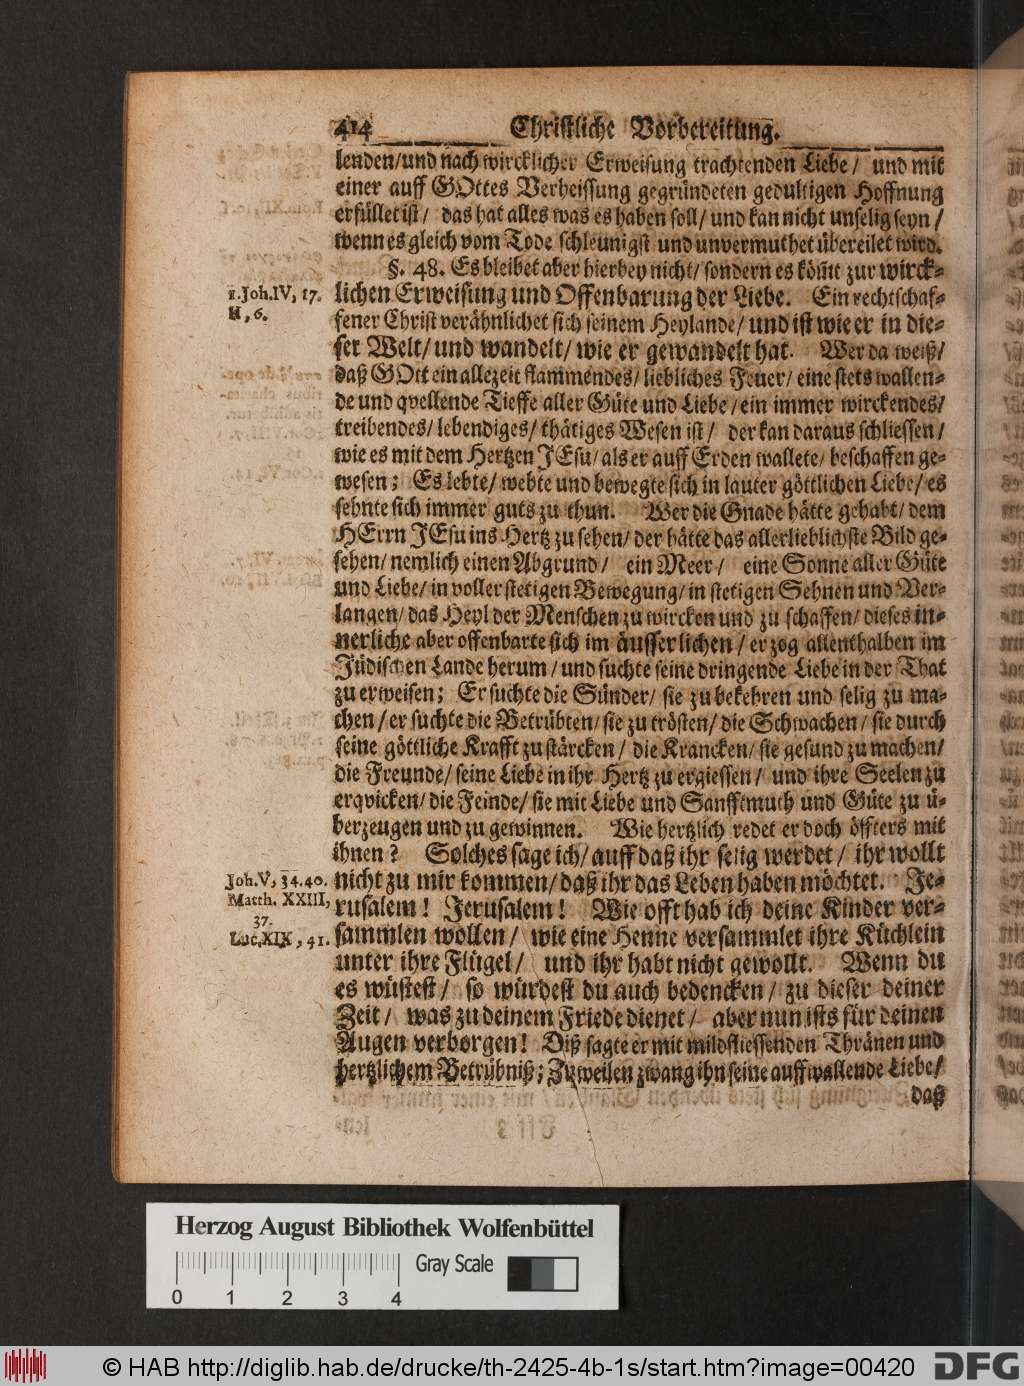 414 Christliche Vorbereitung.
lenden/und nach wircklicher Erweisung trachtenden Liebe/ und mit
einer auff GOttes Verheissung gegründeten gedultigen Hoffnung
erfüllet ist/ das hat alles was es haben soll/ und kan nicht unselig seyn/
wenn es gleich vom Tode schleunigst und unvermuthet übereilet wird.
§. 48. Es bleibet aber hierbey nicht/ sondern es köm̃t zur wirck-
1. Joh. IV, 17.
II, 6.
lichen Erweisung und Offenbarung der Liebe. Ein rechtschaf-
fener Christ verähnlichet sich seinem Heylande/ und ist wie er in die-
ser Welt/ und wandelt/ wie er gewandelt hat. Wer da weiß/
daß GOtt ein allezeit flammendes/ liebliches Feuer/ eine stets wallen-
de und qvellende Tieffe aller Güte und Liebe/ ein immer wirckendes/
treibendes/ lebendiges/ thätiges Wesen ist/ der kan daraus schliessen/
wie es mit dem Hertzen JEsu/ als er auff Erden wallete/ beschaffen ge-
wesen; Es lebte/ webte und bewegte sich in lauter göttlichen Liebe/ es
sehnte sich immer guts zu thun. Wer die Gnade hätte gehabt/ dem
HErrn JEsu ins Hertz zu sehen/ der hätte das allerlieblichste Bild ge-
sehen/ nemlich einen Abgrund/ ein Meer/ eine Sonne aller Güte
und Liebe/ in voller stetigen Bewegung/ in stetigen Sehnen und Ver-
langen/ das Heyl der Menschen zu wircken und zu schaffen/ dieses in-
nerliche aber offenbarte sich im äusserlichen/ er zog allenthalben im
Jüdischen Lande herum/ und suchte seine dringende Liebe in der That
zu erweisen; Er suchte die Sünder/ sie zu bekehren und selig zu ma-
chen/ er suchte die Betrübten/ sie zu trösten/ die Schwachen/ sie durch
seine göttliche Krafft zu stärcken/ die Krancken/ sie gesund zu machen/
die Freunde/ seine Liebe in ihr Hertz zu ergiessen/ und ihre Seelen zu
erqvicken/ die Feinde/ sie mit Liebe und Sanfftmuth und Güte zu ü-
berzeugen und zu gewinnen. Wie hertzlich redet er doch öffters mit
ihnen? Solches sage ich/ auff daß ihr selig werdet/ ihr wollt
Joh. V, 34. 40.
Matth. XXIII,
37.
Luc. XIX, 41.
nicht zu mir kommen/ daß ihr das Leben haben möchtet. Je-
rusalem! Jerusalem! Wie offt hab ich deine Kinder ver-
sammlen wollen/ wie eine Henne versammlet ihre Küchlein
unter ihre Flügel/ und ihr habt nicht gewollt. Wenn du
es wüstest/ so würdest du auch bedencken/ zu dieser deiner
Zeit/ was zu deinem Friede dienet/ aber nun ists für deinen
Augen verborgen! Diß sagte er mit mildfliessenden Thränen und
hertzlichem Betrübniß; Zuweilen zwang ihn seine auffwallende Liebe/
daß
Herzog August Bibliothek Wolfenbüttel
Gray Scale
0 1 2 3 4
© HAB http://diglib.hab.de/drucke/th-2425-4b-1s/start.htm?image=00420
DFG